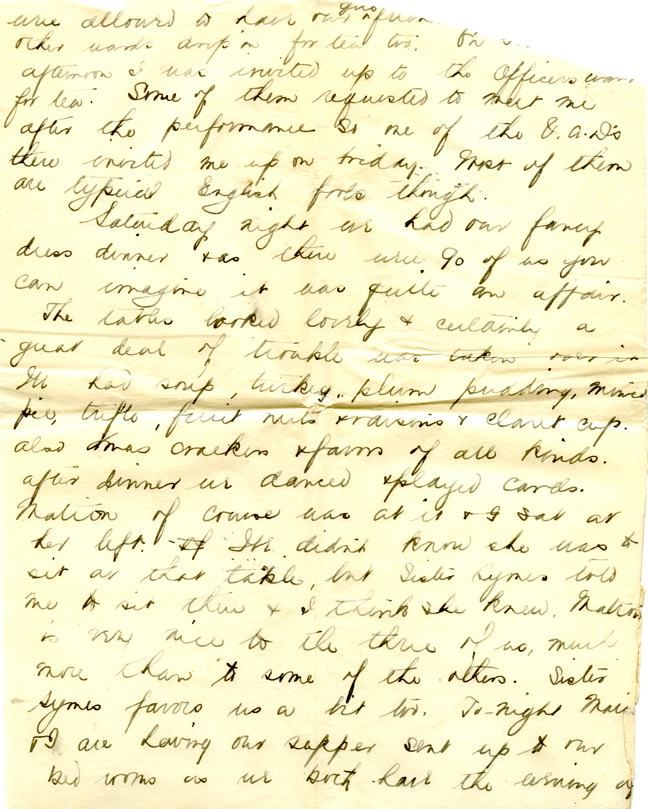 were allowed to have our
other wards drop in for tea too. On
afternoon I was invited up to the Officers ward
for tea. Some of them requested to meet me
after the performance so one of the V.A.D's
there invited me up on Friday. Most of them
are typical English fools though.
Saturday night we had our fancy
dress dinner & as there were 90 of us you
can imagine it was quite an affair.
The tables looked lovely & certainly a
great deal of trouble was taken over it
We had soup, turkey, plum pudding, mince
pie, trifle, fruit nuts & raisins & claret cup.
also Xmas crackers & favors of all kinds.
after dinner we danced & played cards.
Matron of course was at it & I sat at
her left. We didn't know she was to
sit at that table, but Sister Symes told
me to sit there & I think she knew. Matron
is very nice to the three of us, much
more than to some of the others. Sister
Symes favors us a bit too. To-night
& I are having our supper sent up to our
bed rooms as we both have the evening off